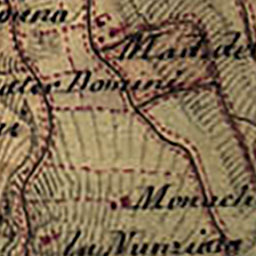 Mad. del
ater Domini
Monach
la Nunziata